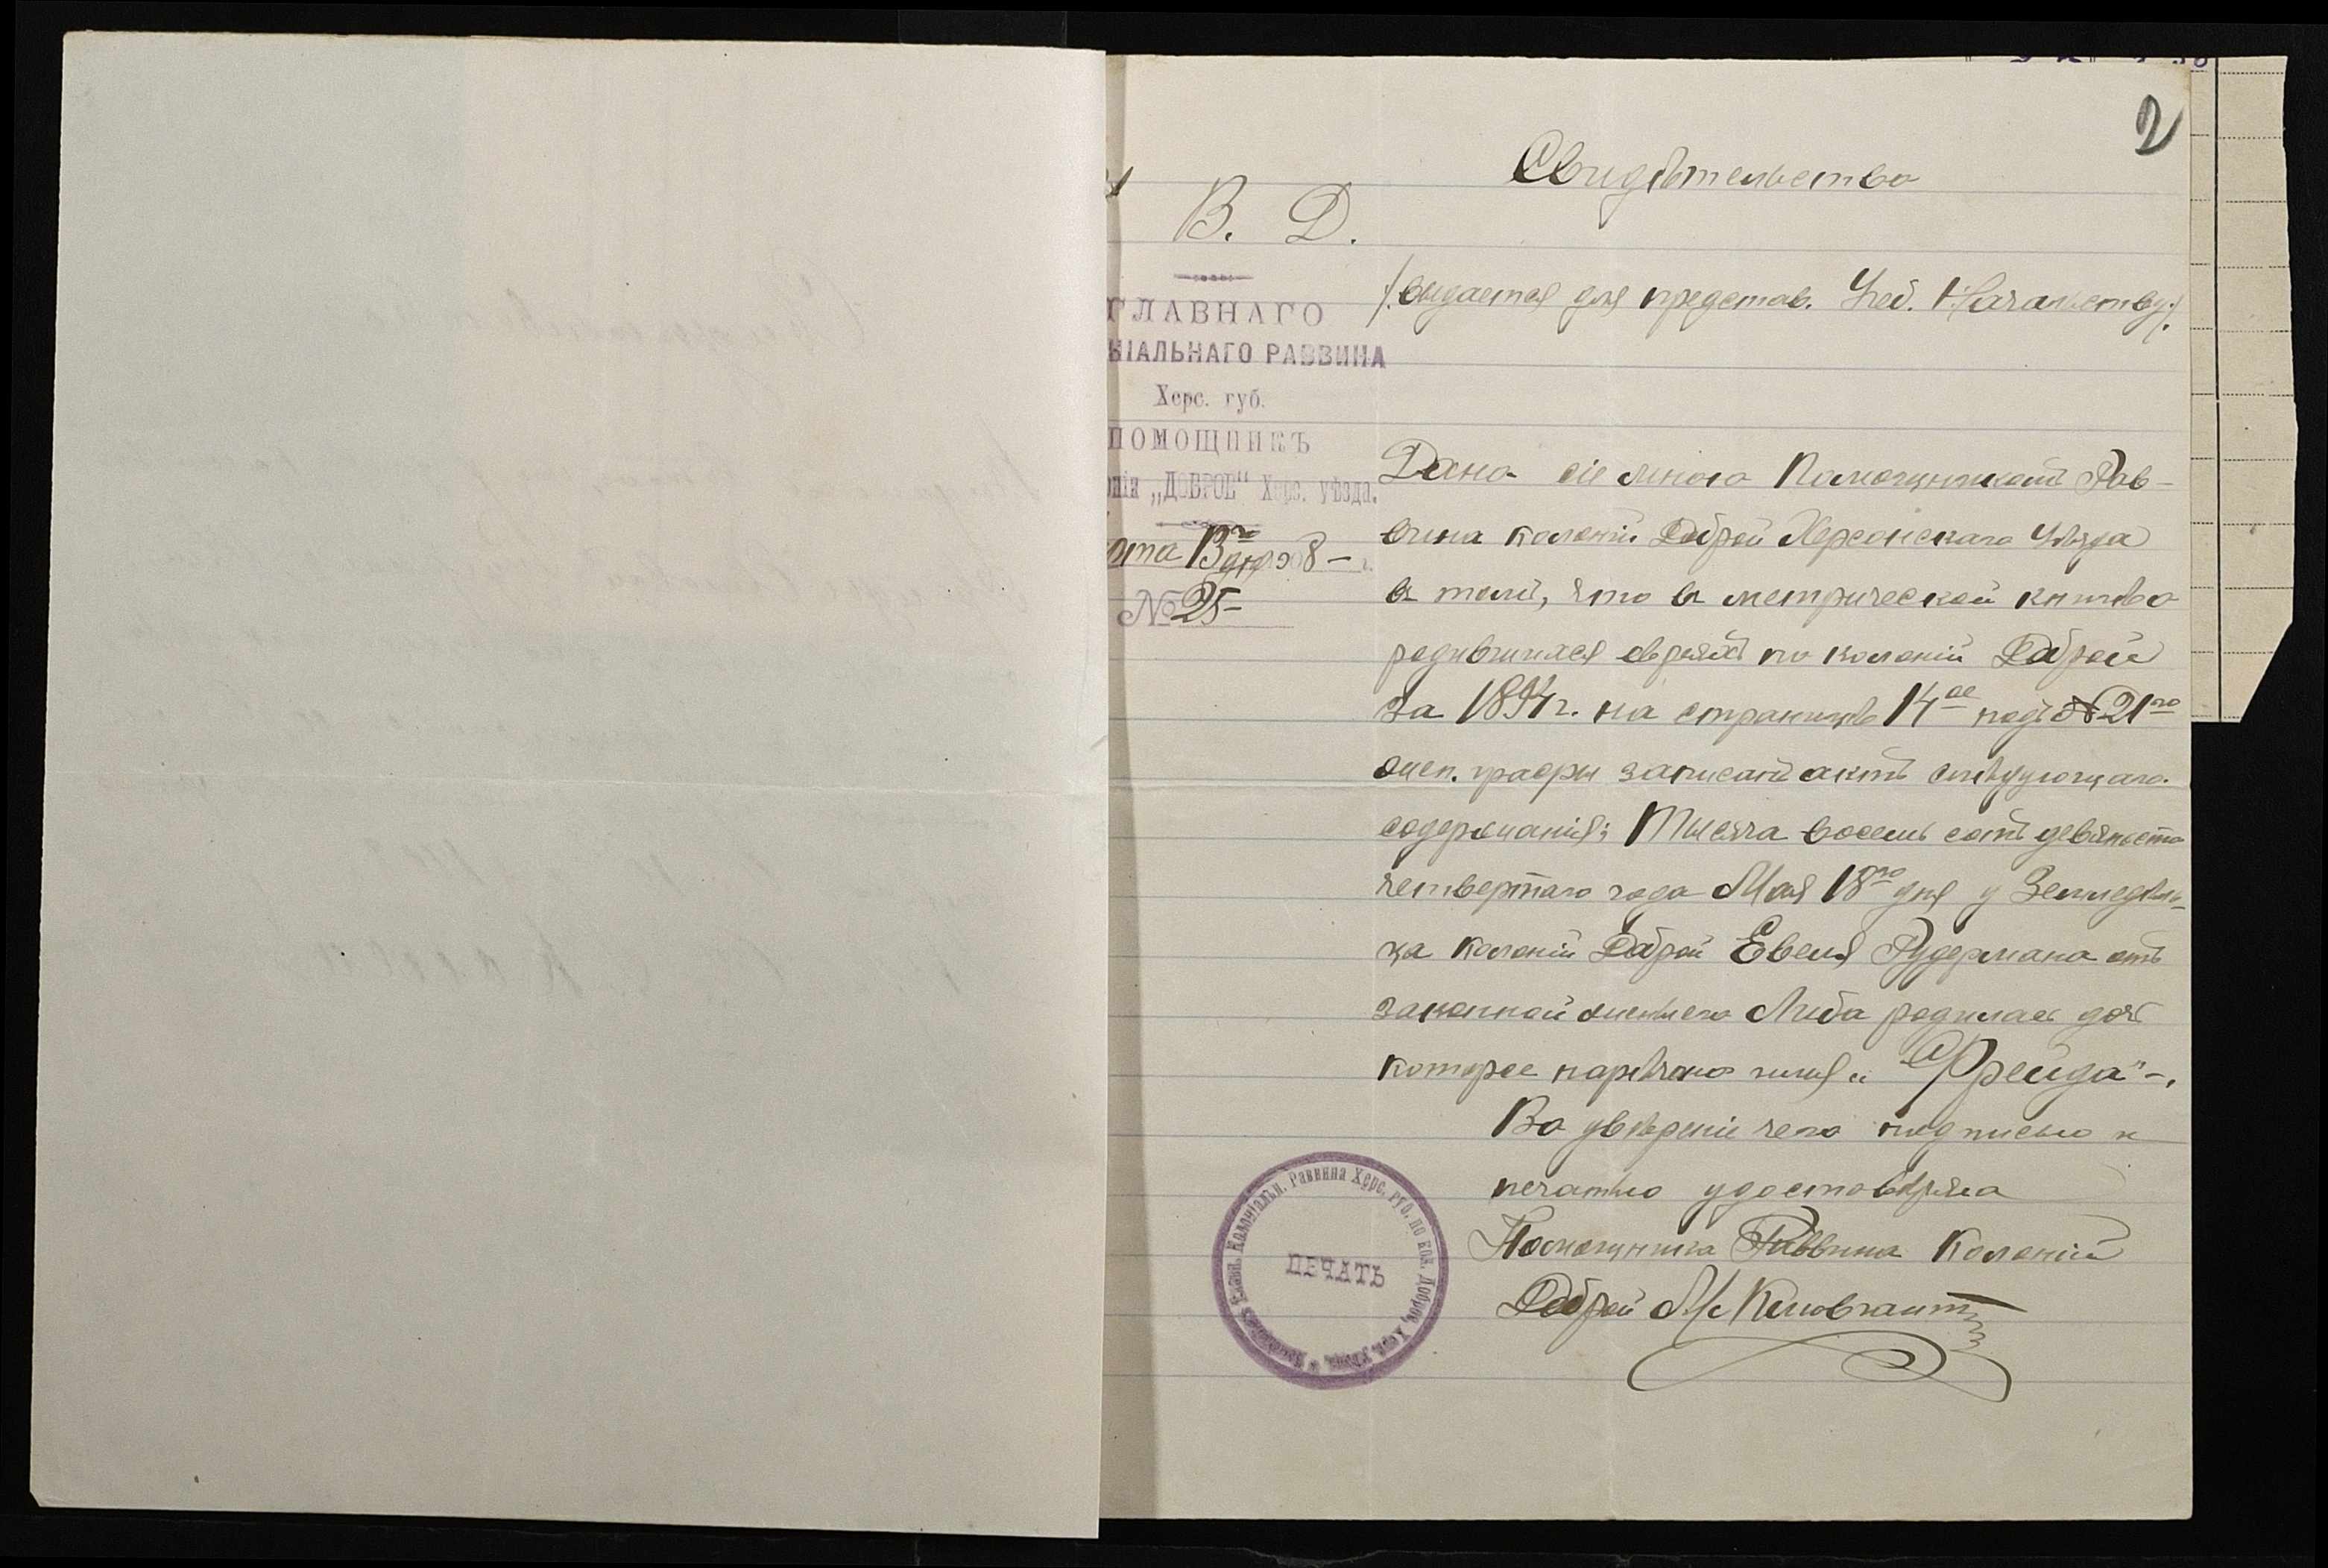 2
Свидѣтельство
В. Д.
/выдается для представ. Учеб. Начальству/.
ГЛАВНАГО
НІАЛЬНАГО РАВВИНА
Херс. губ.
ПОМОЩНИКЪ
ніи „ДОБРОЕ" Херс. уѣзда.
рта 13го дня 1908 – г.
№ 25 –
Дано сіе мною Помощникомъ Рав-
вина колоніи Доброй Херсонскаго Уѣзда
въ томъ, что въ метрической книгѣ о
родившихся евреяхъ по колоніи Доброй
за 1894 г. на страницѣ 14ое подъ № 21го
жен. графы записанъ актъ слѣдующаго
содержанія: Тысяча восемь сотъ девяносто
четвертаго года Мая 18го дня у Земледѣль-
ца колоніи Доброй Евеля Рудермана отъ
законной жены его Либа родилась дочь
которое наречено имя „Фрейда" –.
Во увѣреніе чего подписью и
печатью удостовѣряю
Помощника Раввина Колоніи
Доброй М.
Главн. Колоніальн. Раввина Херс. губ. по кол. Доброе, Херс. уѣзда,
ПЕЧАТЬ